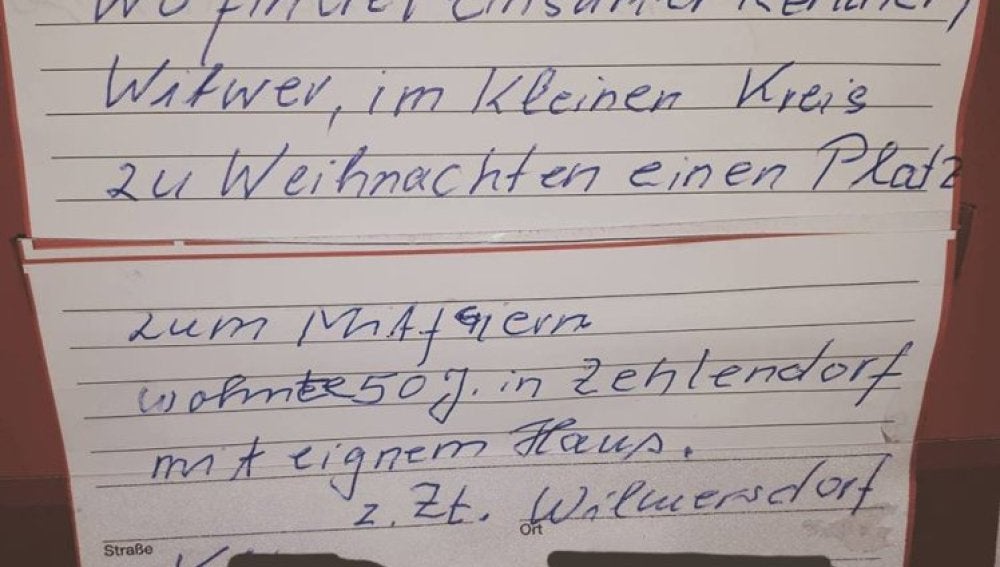 Wo findet einsamer Rentner,
Witwer, im kleinen Kreis
zu Weihnachten einen Platz
zum Mitfeiern
wohnte 50 J. in Zehlendorf
mit eignem Haus.
z. Zt. Wilmersdorf
Straße
Ort